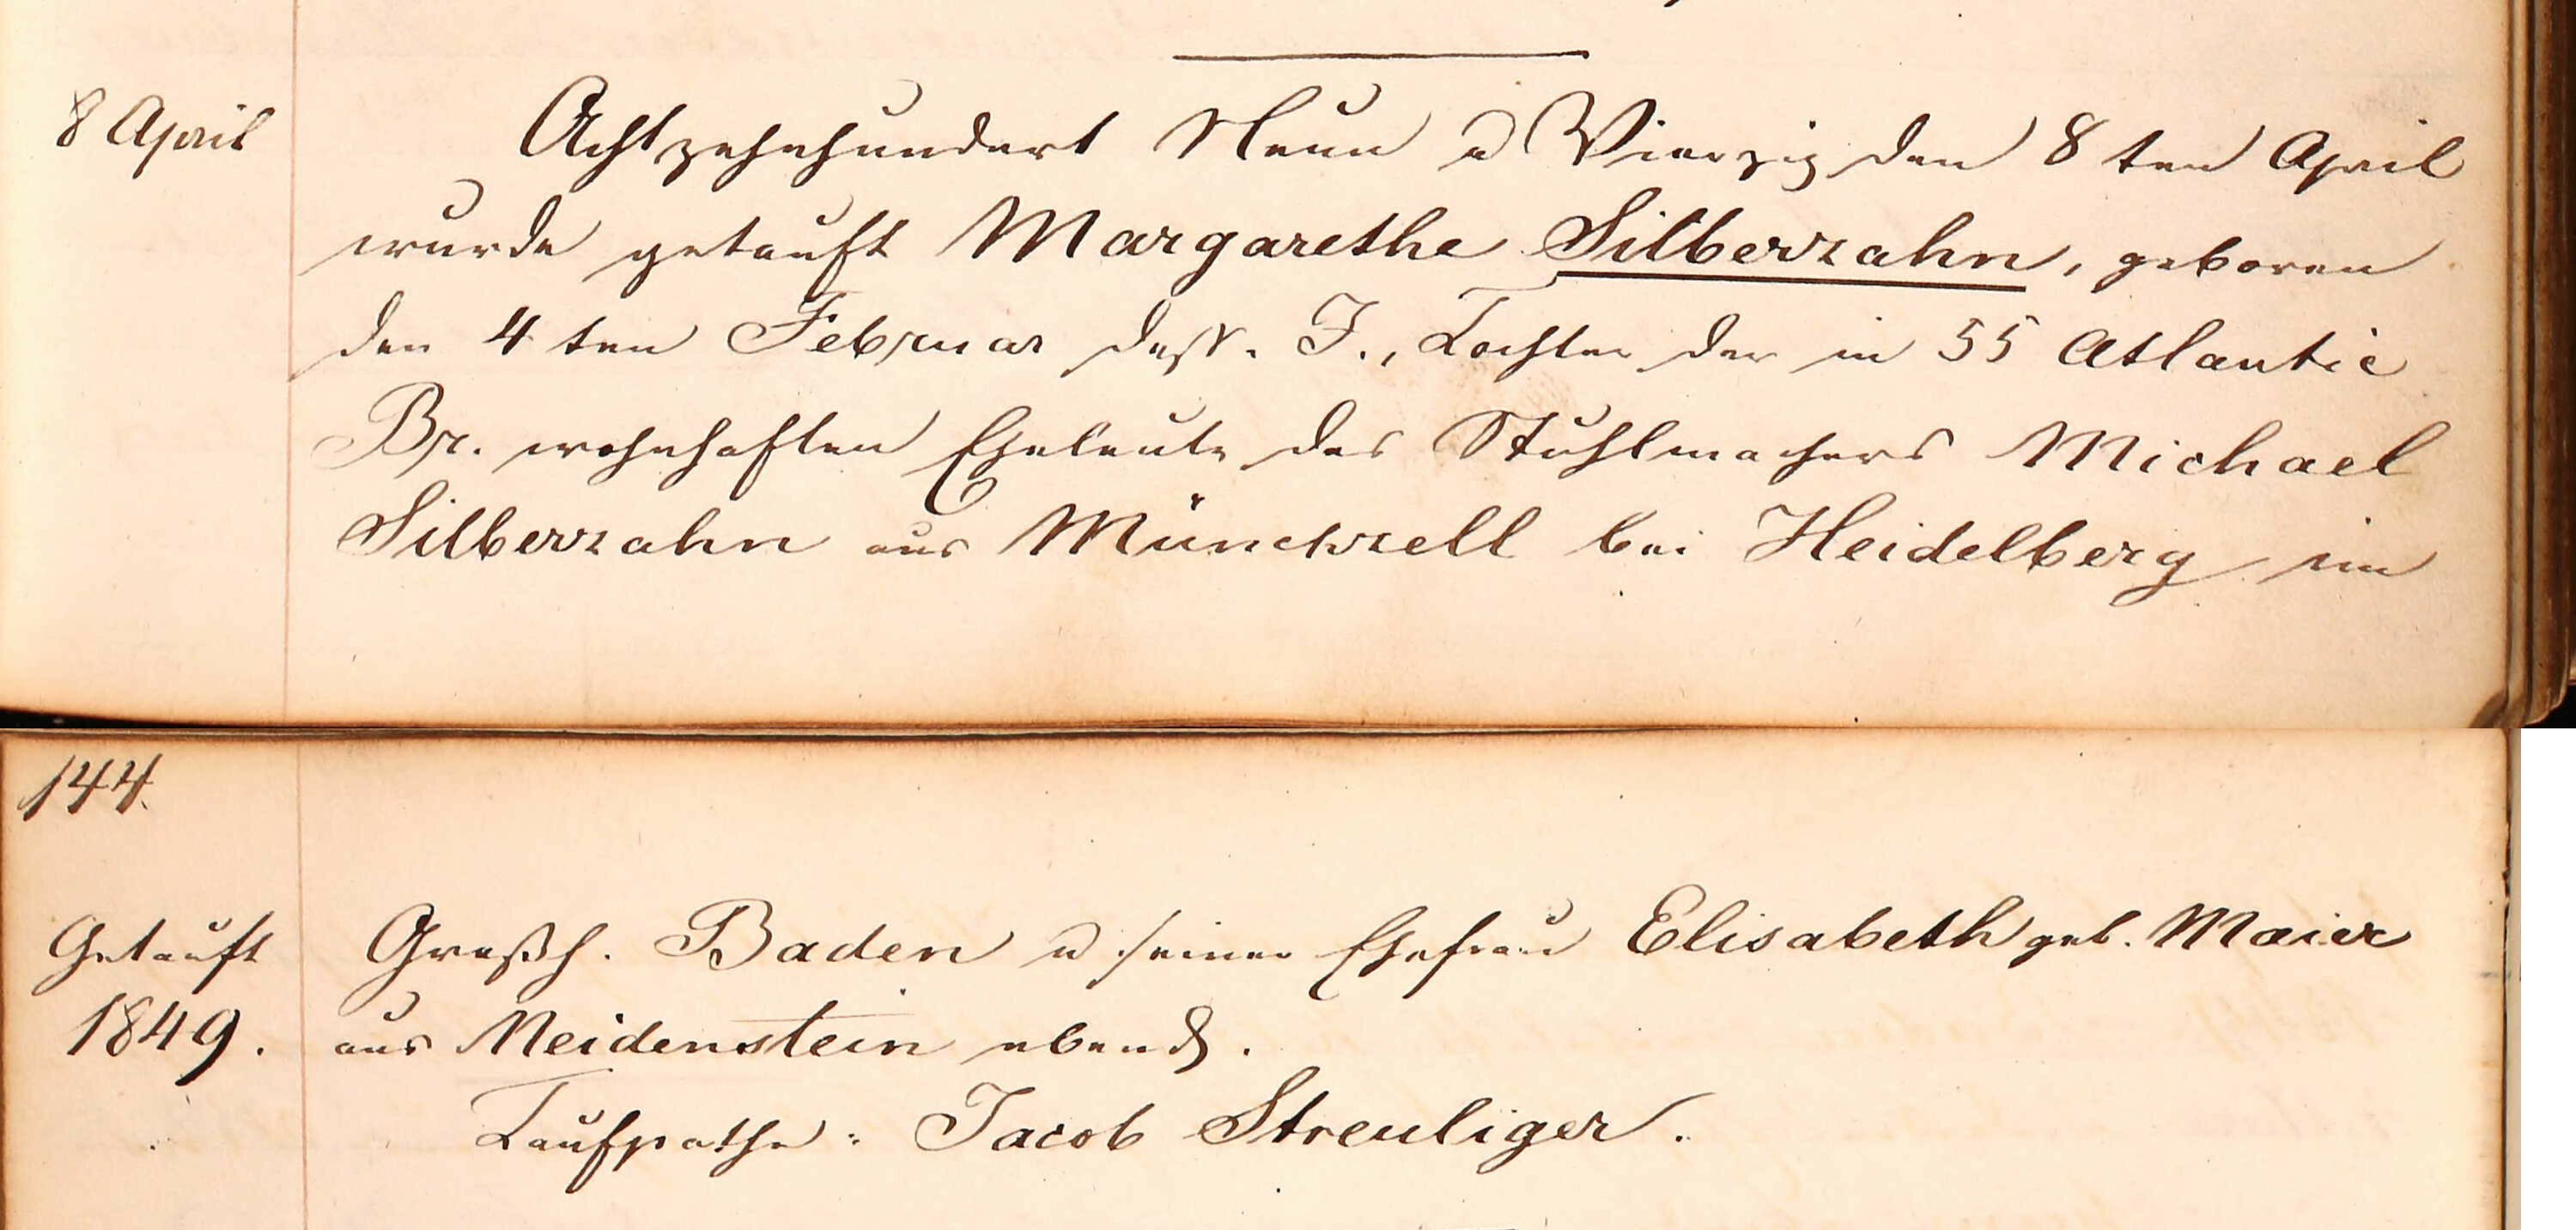 8 April
Achtzehnhundert Neun u Vierzig den 8 ten April
wurde getauft Margarethe Silberzahn, geboren
den 4 ten Februar dess. J., Tochter der in 55 Atlantic
Br. wohnhaften Eheleute des Stuhlmachers Michael
Silberzahn aus Münchzell bei Heidelberg im
144.
Getauft
1849.
Großh. Baden u seiner Ehefrau Elisabeth geb. Maier
aus Neidenstein ebends.
Taufpathe: Jacob Streuliger.